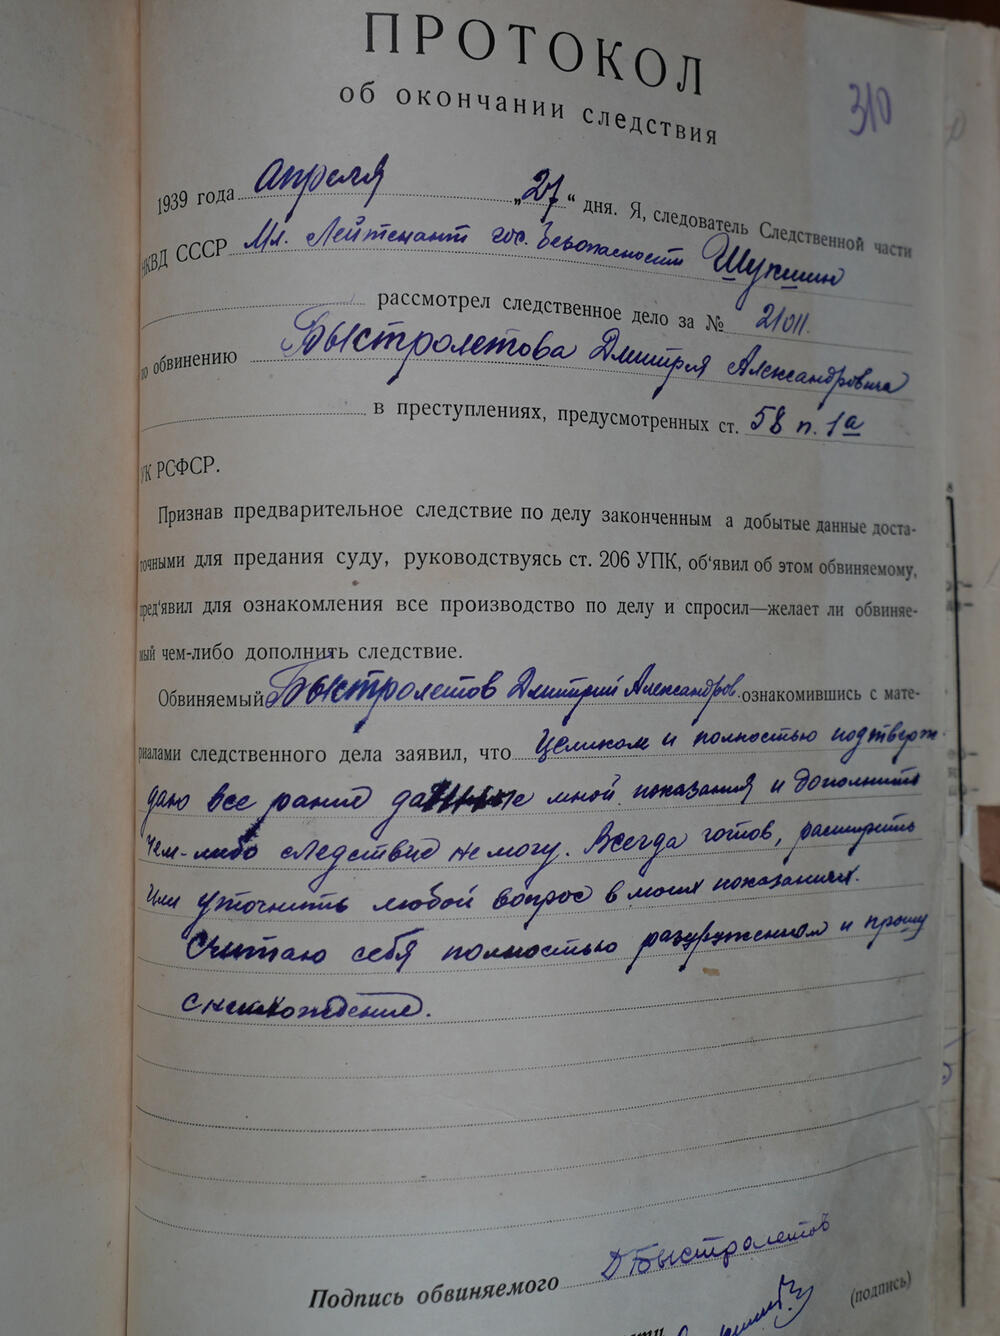 ПРОТОКОЛ
об окончании следствия
310
1939 года апреля „27“ дня. Я, следователь Следственной части
НКВД СССР Мл. Лейтенант гос. безопасности Шукшин
рассмотрел следственное дело за № 21011.
по обвинению Быстролетова Дмитрия Александровича
в преступлениях, предусмотренных ст. 58 п. 1а
УК РСФСР.
Признав предварительное следствие по делу законченным а добытые данные доста-
точными для предания суду, руководствуясь ст. 206 УПК, об'явил об этом обвиняемому,
пред'явил для ознакомления все производство по делу и спросил—желает ли обвиняе-
мый чем-либо дополнить следствие.
Обвиняемый Быстролетов Дмитрий Александров. ознакомившись с мате-
риалами следственного дела заявил, что Целиком и полностью подтверж-
даю все ранее данные мной показания и дополнить
чем-либо следствие не могу. Всегда готов, расширить
или уточнить любой вопрос в моих показаниях.
Считаю себя полностью разоруженным и прошу
снисхождение.
Подпись обвиняемого Д Быстролетов
(подпись)